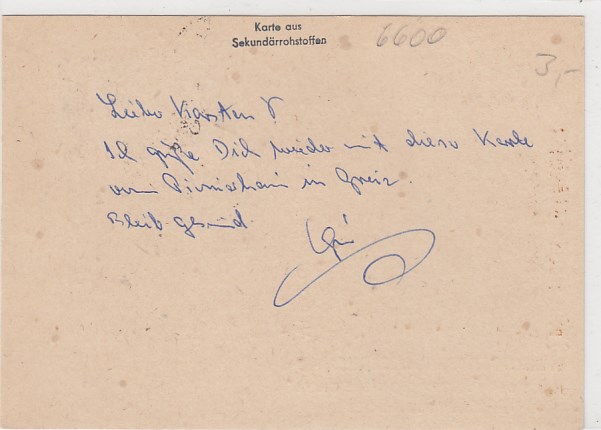 Karte aus
Sekundärrohstoffen
6600
3,-
Lieber Karsten!
Ich grüße Dich wieder mit dieser Karte
vom in Greiz.
Bleib gesund